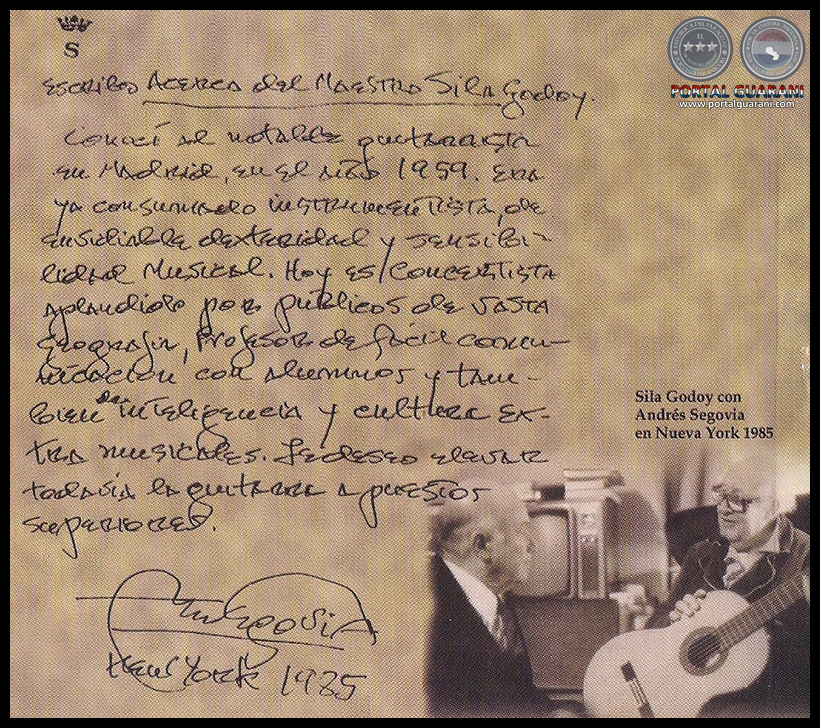 S
EL
PORTAL GUARANI
www.portalguarani.com
Escribo Acerca del Maestro Sila Godoy.
Conocí al notable guitarrista
en Madrid, en el año 1959. Era
ya consumado instrumentista, de
envidiable dexteridad y sensibi-
lidad Musical. Hoy es concertista
aplaudido por públicos de vasta
geografía, Profesor de fácil comu-
nicación con alumnos y tam-
bien de inteligencia y cultura ex-
tra musicales. Le deseo elevar
todavía la guitarra a puestos
superiores.
Segovia
New York 1985
Sila Godoy con
Andrés Segovia
en Nueva York 1985